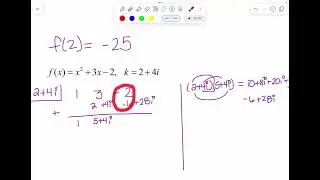 f(2) = -25
f(x) = x² + 3x - 2, k = 2 + 4i
2+4i 1 3 -2 (2+4i)(5+4i) = 10+8i+20i+
+ 2+4i -6+28i -6+28i
1 5+4i